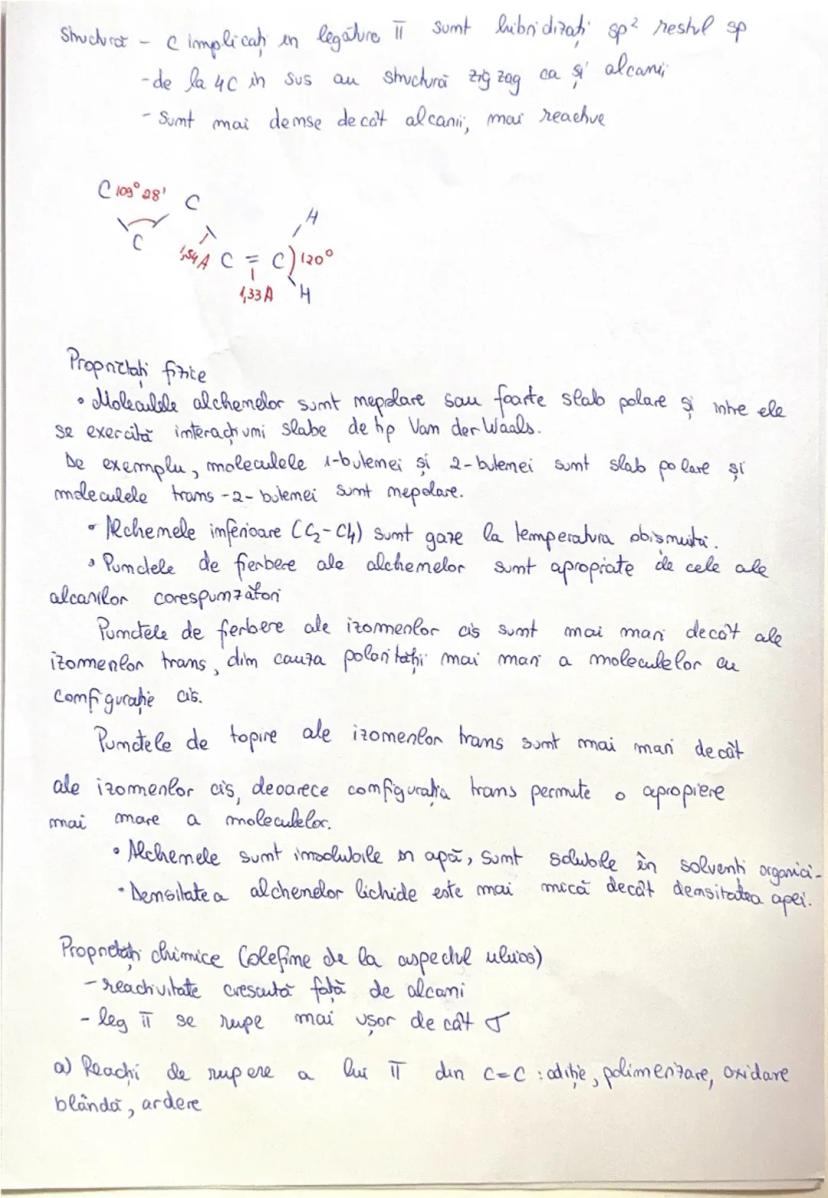 Structură - C implicați în legătura π sunt hibridizați sp² restul sp
- de la 4C în sus au structură zig zag ca și alcanii
- Sunt mai dense decât alcanii, mai reactive
C 109° 28' C
H
C
1,54A C = C 120°
1,33A H
Proprietăți fizice
• Moleculele alchenelor sunt nepolare sau foarte slab polare și între ele
se exercită interacțiuni slabe de tip Van der Waals.
De exemplu, moleculele 1-butenei și 2-butenei sunt slab polare și
moleculele trans-2-butenei sunt nepolare.
• Alchenele inferioare (C2-C4) sunt gaze la temperatura obisnuită.
• Punctele de fierbere ale alchenelor sunt apropiate de cele ale
alcanilor corespunzători
Punctele de fierbere ale izomerilor cis sunt mai mari decât ale
izomerilor trans, din cauza polarității mai mari a moleculelor cu
configurație cis.
Punctele de topire ale izomerilor trans sunt mai mari decât
ale izomerilor cis, deoarece configurația trans permite o apropiere
mai mare a moleculelor.
• Alchenele sunt insolubile în apă, sunt solubile în solvenți organici.
• Densitatea alchenelor lichide este mai mică decât densitatea apei.
Proprietăți chimice (olefine de la aspectul uleios)
- reactivitate crescută față de alcani
- leg π se rupe mai ușor de cât σ
a) Reacții de rupere a lui π din C=C : adiție, polimerizare, oxidare
blândă, ardere